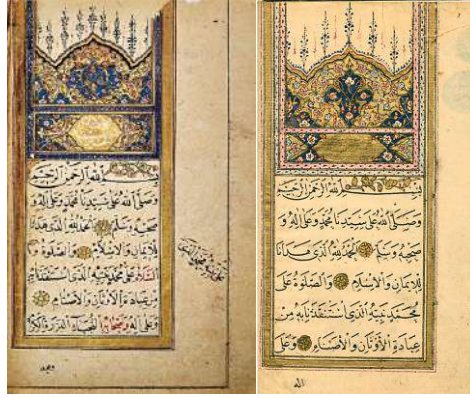 بسم الله الرحمن الرحيم
وصلى الله على سيدنا محمد وعلى اله و
صحبه وسلم الحمد لله الذى هدانا
للايمان والاسلام والصلوة و
السلام على محمد نبيه الذى استنقذنا به
من عبادة الاوثان والاصنام
وعلى اله وصحابه النجباء البررة الكرا
وبعد
بسم الله الرحمن الرحيم
وصلى الله على سيدنا محمد وعلى اله و
صحبه وسلم الحمد لله الذى هدانا
للايمان والاسلام والصلوة على
محمد نبيه الذى استنقذنا به من
عبادة الاوثان والاصنام وعلى
اله